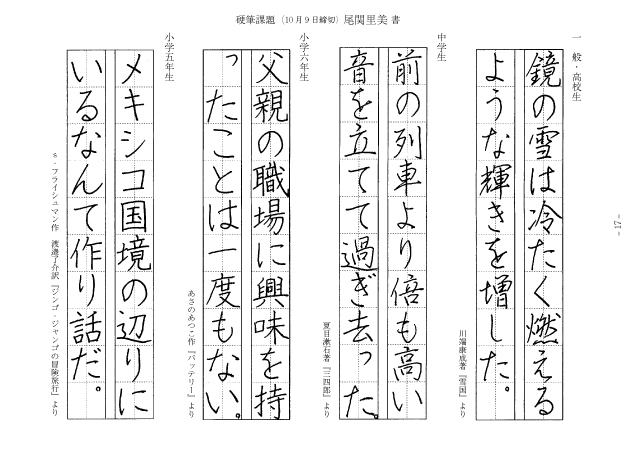 硬筆課題(10月9日締切)尾関里美 書
一般・高校生
鏡の雪は冷たく燃える
ような輝きを増した。
川端康成著『雪国』より
中学生
前の列車より倍も高い
音を立てて過ぎ去った。
夏目漱石著『三四郎』より
小学六年生
父親の職場に興味を持
ったことは一度もない。
あさのあつこ作『バッテリー』より
小学五年生
メキシコ国境の辺りに
いるなんて作り話だ。
s・フライシュマン作 渡邉了介訳『ジンゴ・ジャンゴの冒険旅行』より
-17-